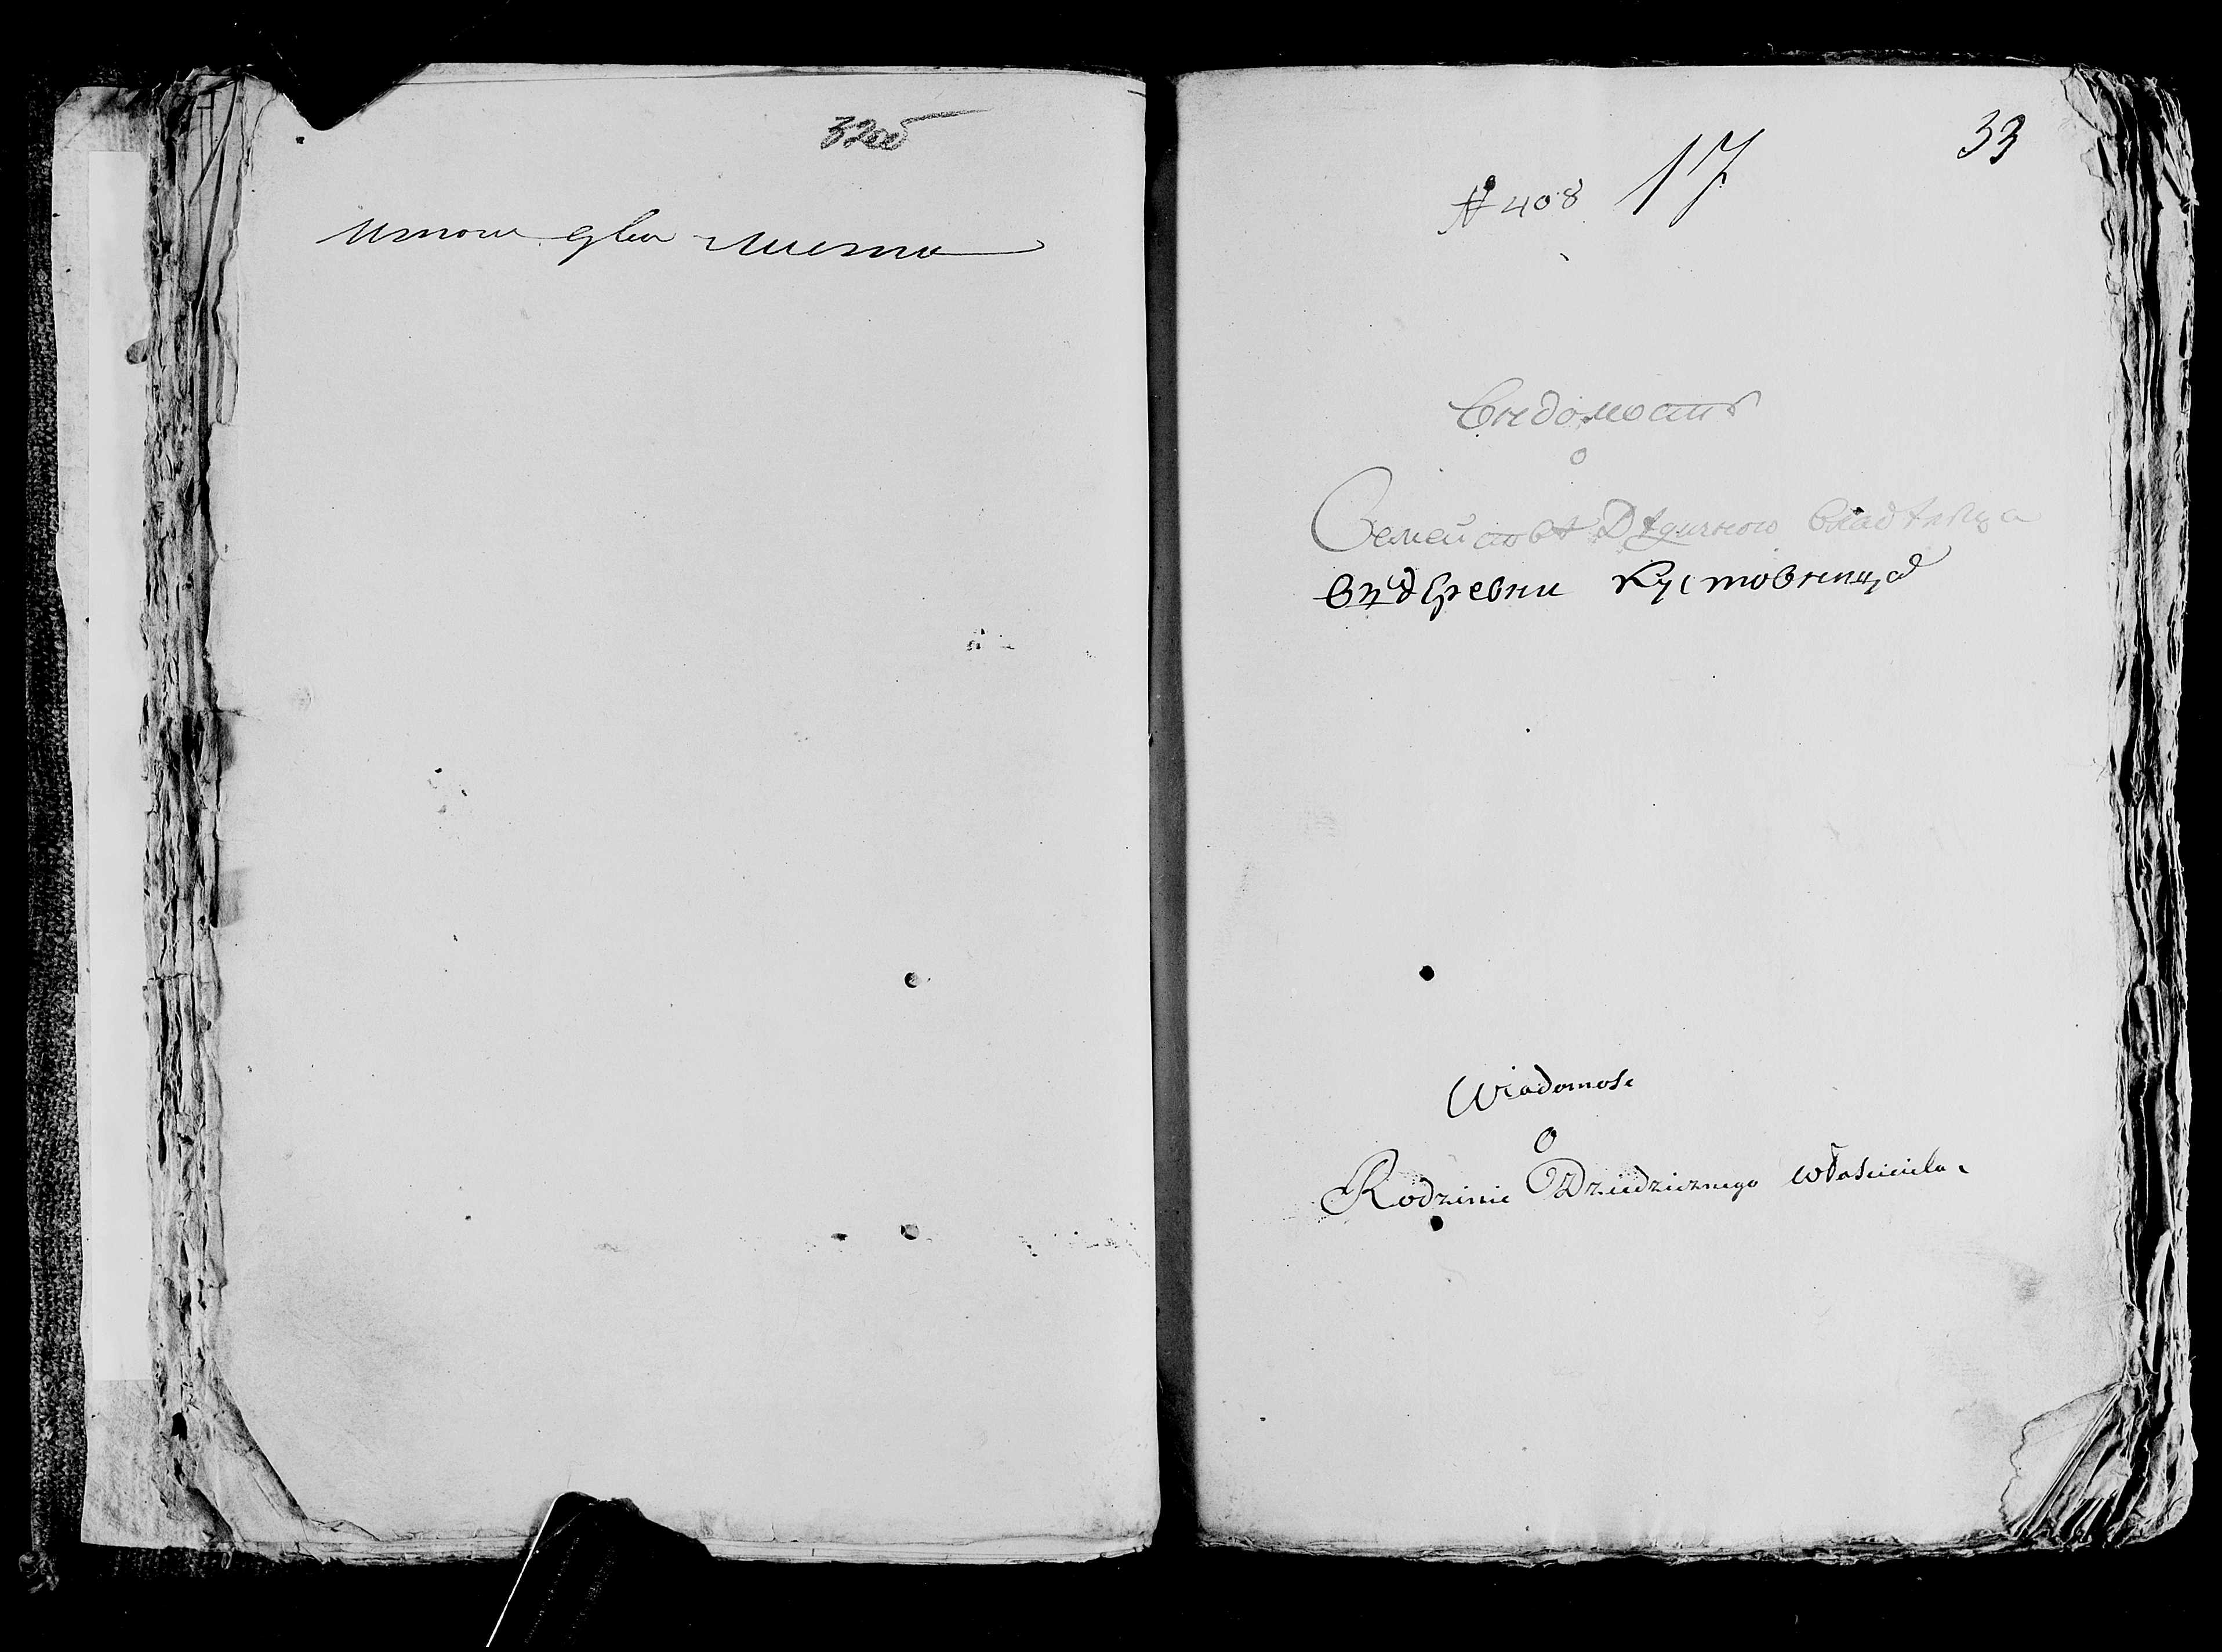 32об
итого два листа
№ 408 17
33
Ведомость
о
Семействе Дѣдичного владѣльца
въ деревни Кустовницѣ
Wiadomosc
O
Rodzinie Dziedzicznego własciciela